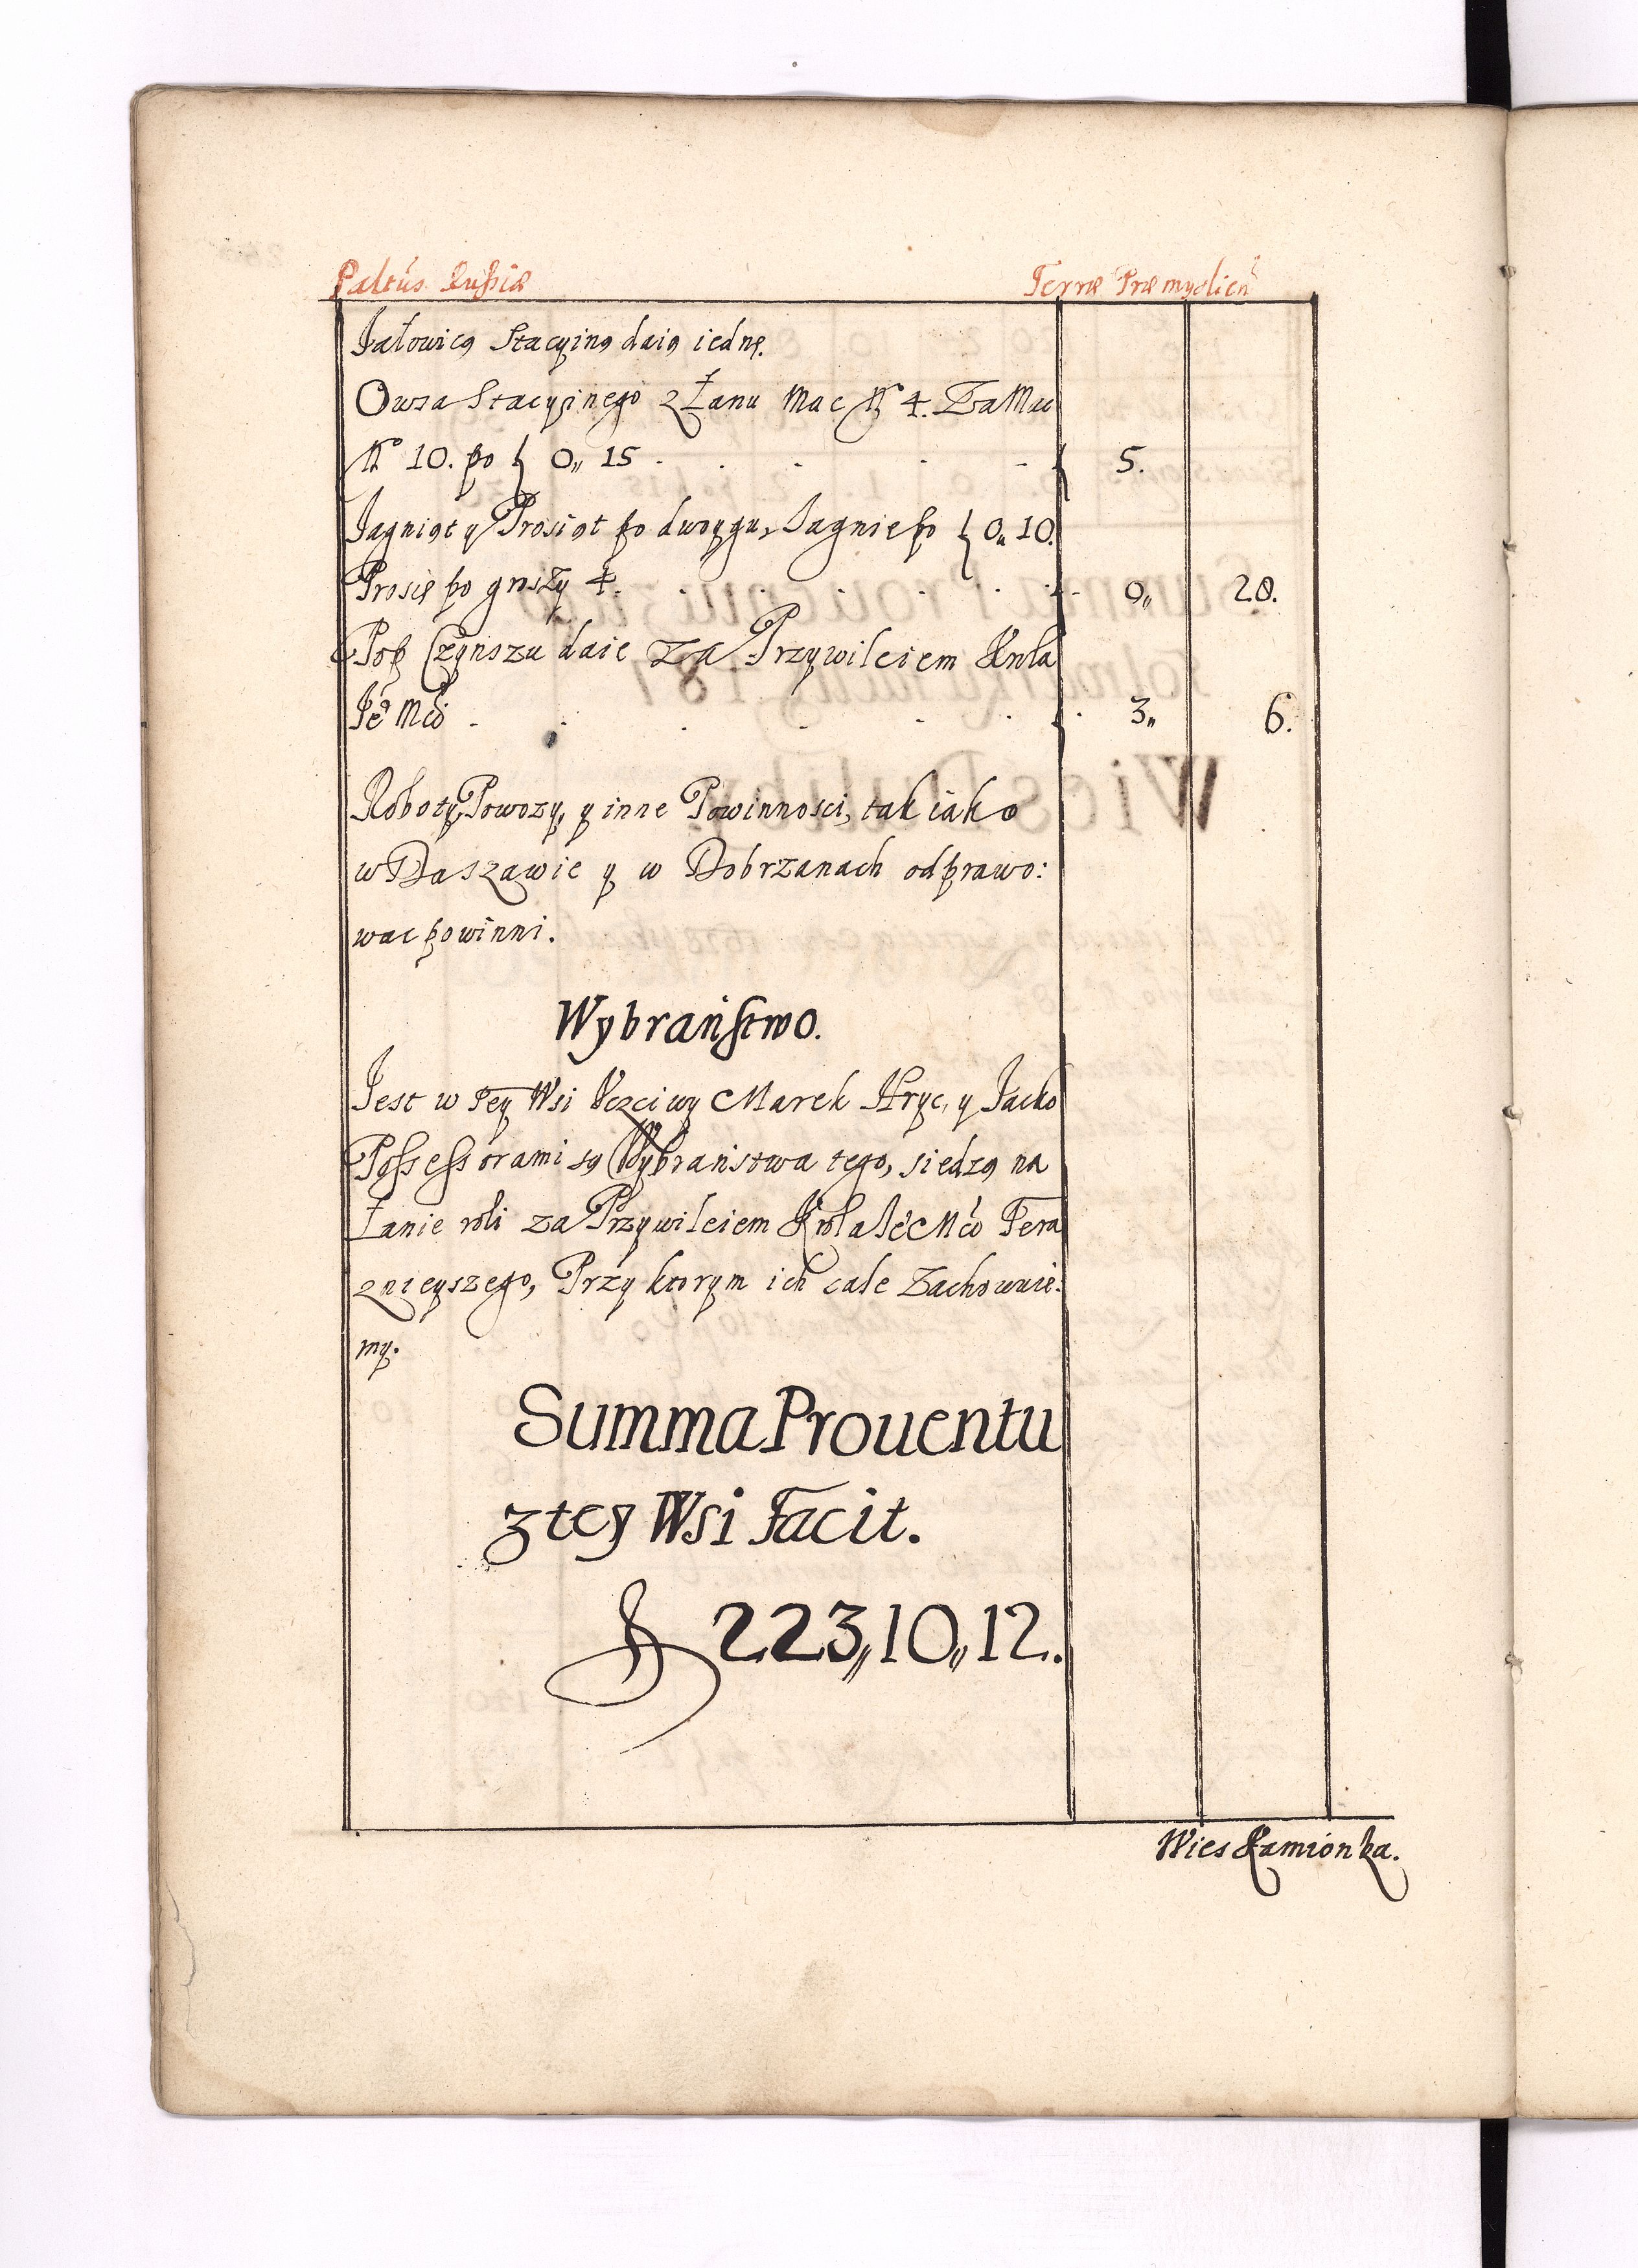 Paltûs Russiæ Terræ Præmyslien̄
Jałowicą Stacyiną daią iednę.
Owsa Stacyjnego z Łanu Mac No 4. Za Mac
No 10. po { 0,, 15 . . . . - { 5.
Jagniąt y Prosiąt po dwoygu, Jagnie po { 0,, 10.
Prosię po groszy 4. . . . . . 0,, 28.
Pop Czynszu daie za Przywileiem Krola
Jeo Mći - . . . . . { . 3,, 6.
Roboty, Powozy, y inne Powinnosci, tak iako
w Daszawie y w Dobrzanach odprawo:
wac powinni.
Wybraństwo.
Jest w tey Wsi Uczciwy Marek Hryc, y Jacko
Possessorami są Wybraństwa tego, siedzą na
Łanie roli za Przywileiem Krola Jeo Mći Tera
znieyszego, Przy ktorym ich cale Zachowuie:
my.
Summa Prouentu
z tey Wsi Facit.
223,, 10,, 12.
Wies Kamionka.